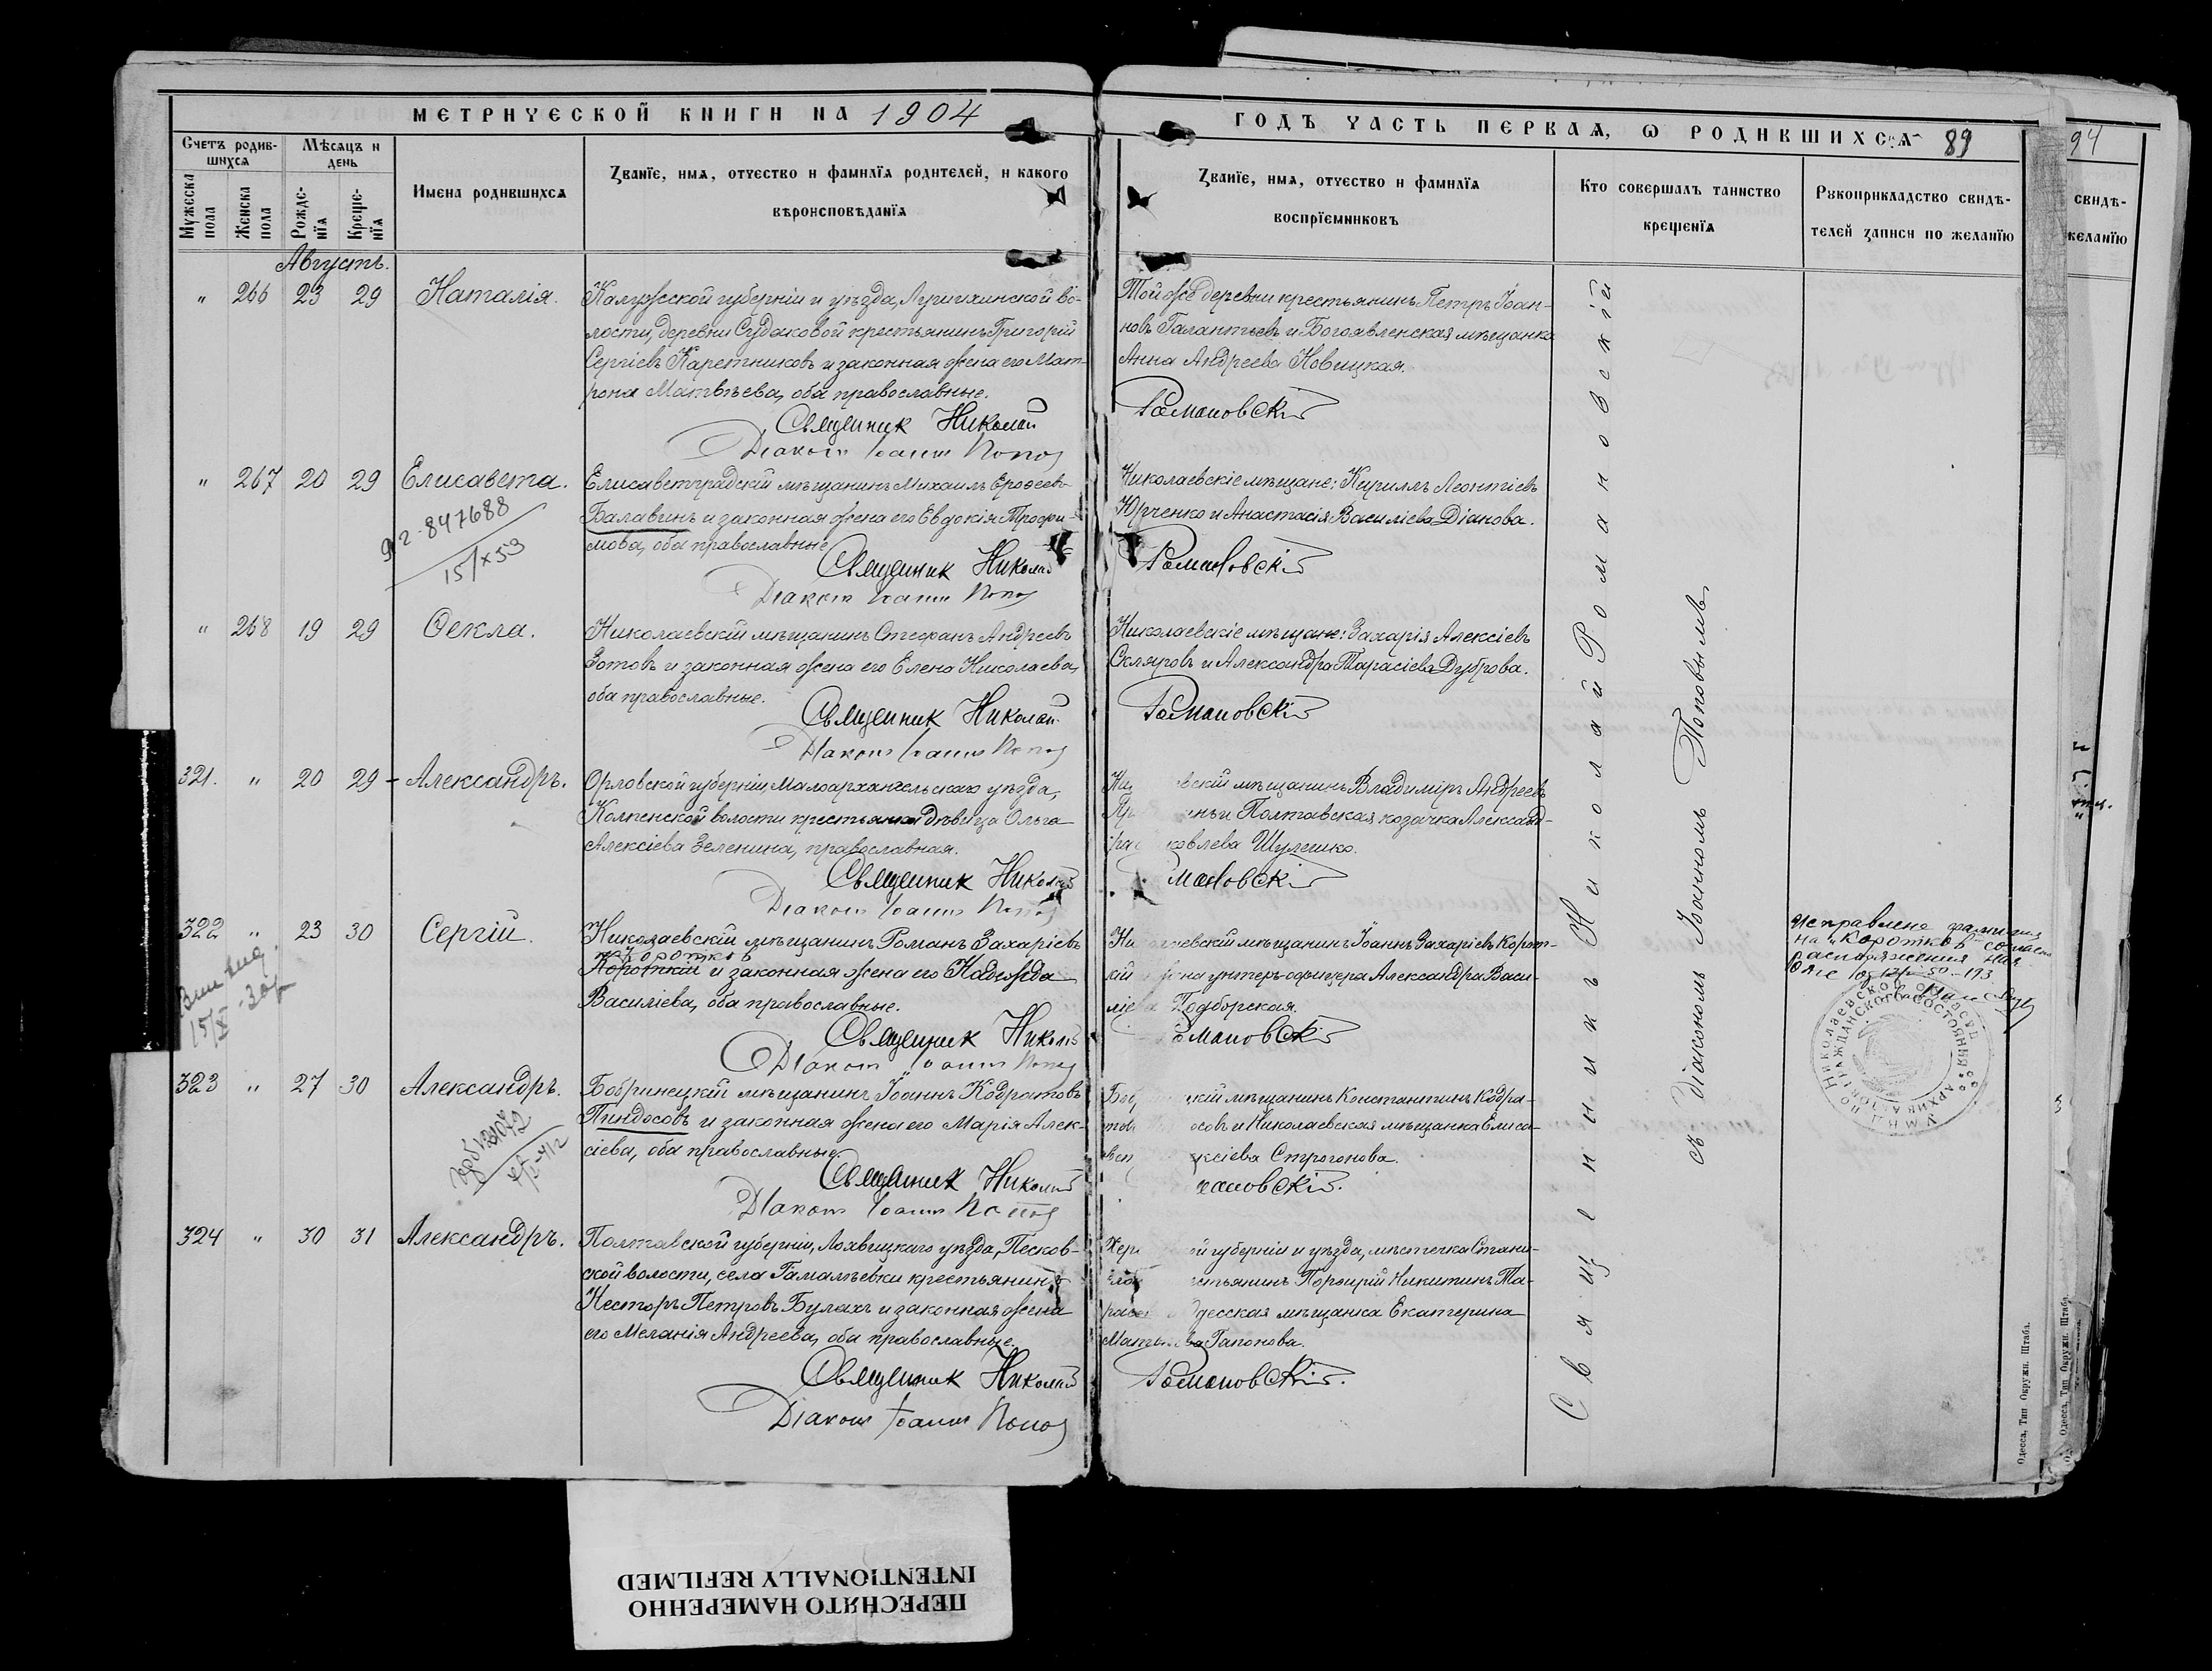 МЕТРИЧЕСКОЙ КНИГИ НА 1904
ГОДЪ ЧАСТЬ ПЕРВАЯ, Ѡ РОДИВШИХСЯ 89
94
Счетъ родившихся
Мѣсяцъ и день
Мужеска пола
Женска пола
Рожденїя
Крещенїя
Имена родившихся
Званїе, имя, отчество и фамилїя родителей, и какого
вѣроисповѣданїя
Званїе, имя, отчество и фамилїя
воспрїемниковъ
Кто совершалъ таинство
крещенїя
Рукоприкладство свидѣ-
телей записи по желанїю
свидѣ-
желанїю
Августъ.
" 266 23 29 Наталія.
Калужской губерніи и уѣзда, во-
лости, деревни Судаковой крестьянинъ Григорій
Сергіевъ Каретниковъ и законная жена его Мат-
рона Матвѣева, оба православные.
Священник Николай
Діакон Іоанн Попов
Той же деревни крестьянинъ Петръ Іоан-
новъ Галантьевъ и Богоявленская мѣщанка
Анна Андреева Новицкая.
Романовскій
" 267 20 29 Елисавета.
847688
15/X 53
Елисаветградскій мѣщанинъ Михаилъ Ерофеевъ
Балавинъ и законная жена его Евдокія Трофи-
мова, оба православные
Священник Николай
Діакон Іоанн Попов
Николаевскіе мѣщане: Кириллъ Леонтіевъ
Юрченко и Анастасія Василіева Діанова.
Романовскій
" 268 19 29 Ѳекла.
Николаевскій мѣщанинъ Стефанъ Андреевъ
Зотовъ и законная жена его Елена Николаева,
оба православные.
Священник Николай
Діакон Іоанн Попов
Николаевскіе мѣщане: Захарія Алексіевъ
Скляровъ и Александра Тарасіева Дуброва.
Романовскій
321. " 20 29 Александръ.
Орловской губерніи Малоархангельскаго уѣзда,
Колпенской волости крестьянка дѣвица Ольга
Алексіева Зеленина, православная.
Священник Николай
Діакон Іоанн Попов
вскій мѣщанинъ Владиміръ Андреевъ
и Полтавская козачка Александ-
ра ковлева Шулешко.
мановскій
322 " 23 30 Сергій.
15/X
Николаевскій мѣщанинъ Романъ Захаріевъ
Коротков
Короткій и законная жена его Надежда
Василіева, оба православные.
Священник Николай
Діакон Іоанн Попов
Ни лаевскій мѣщанинъ Іоаннъ Захаріевъ Корот-
кій и жена унтеръ-офицера Александра Васи-
ліева Подборская.
омановскій
Исправлено фамилия
на "Коротков" согласно
распоряжения
Николаевской области
АРХИВ
323 " 27 30 Александръ.
Бобринецкій мѣщанинъ Іоаннъ Кодратовъ
Пиндосовъ и законная жена его Марія Алек-
сіева, оба православные.
Священник Николай
Діакон Іоанн Попов
Боб кій мѣщанинъ Константинъ Кодра-
товъ осовъ и Николаевская мѣщанка Елиса-
вет ксіева Строгонова.
мановскій.
324 " 30 31 Александръ.
Полтавской губерніи, Лохвицкаго уѣзда, Песков-
ской волости, села Гамалѣевки крестьянинъ
Несторъ Петровъ Булахъ и законная жена
его Меланія Андреева, оба православные.
Священник Николай
Діакон Іоанн Попов
Хер ой губерніи и уѣзда, мѣстечка Стани-
слав стьянинъ Порфирій Никитинъ Та-
расе десская мѣщанка Екатерина
Матвѣева Гапонова.
Романовскій.
Священникъ Николай Романовскій
съ діакономъ Іоанномъ Поповымъ
Одесса, Тип Окружн. Штаба.
Одесса, Тип Окружн. Штаба.
ПЕРЕСНЯТО НАМЕРЕННО
INTENTIONALLY REFILMED